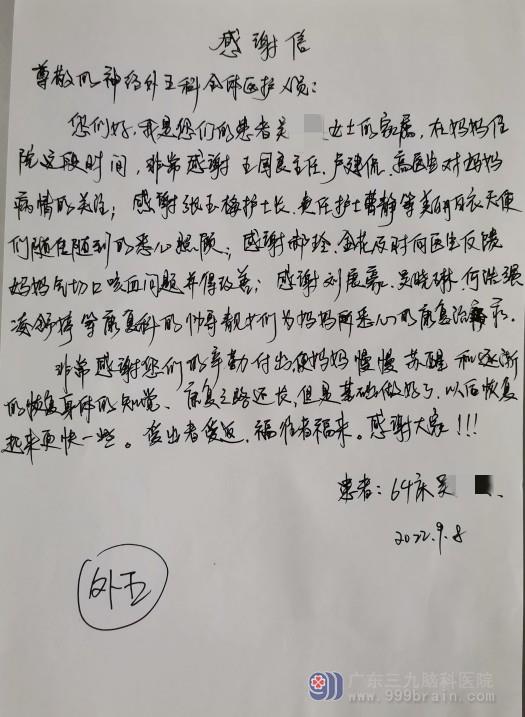 感谢信
尊敬的神经外五科全体医护人员：
您们好，我是您们的患者吴 女士的家属，在妈妈住
院这段时间，非常感谢王国良主任、卢建侃、高医生对妈妈
病情的关注；感谢张玉梅护士长、责任护士曹静等美丽白衣天使
们随住随到的悉心照顾；感谢郝玲、金花及时向医生反馈
妈妈气切口咳血问题并得改善；感谢刘展豪、吴晓琳、何浩强
凌舒婷等康复科的帅哥靓女们为妈妈所悉心的康复治疗。
非常感谢您们的辛勤付出使妈妈慢慢苏醒和逐渐
的恢复身体的知觉、康复之路还长，但是基础做好了，以后恢复
起来更快一些。爱出者爱返，福往者福来。感谢大家！！！
患者：64床吴
2022.9.8
外五
广东三九脑科医院
www.999brain.com